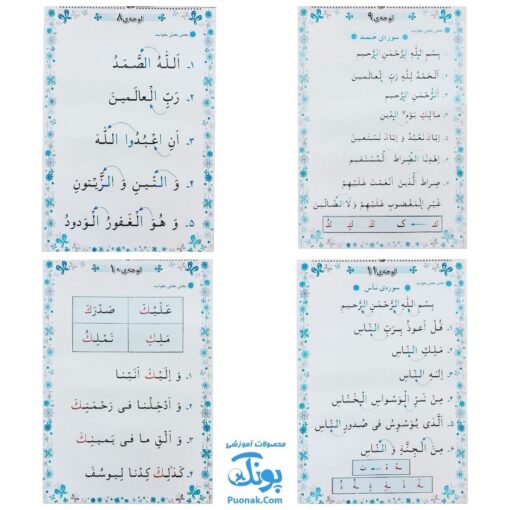 لوحه‌ی ۸
بخش بخش بخوانید
۱. اَللهُ الصَّمَدُ
۲. رَبِّ الْعالَمینَ
۳. اَنِ اعْبُدُوا اللهَ
۴. وَ التّینِ وَ الزَّیْتونِ
۵. وَ هُوَ الْغَفورُ الْوَدودُ
لوحه‌ی ۹
بخش بخش بخوانید
سوره‌ی حمد
بِسْمِ اللهِ الرَّحْمٰنِ الرَّحیمِ
اَلْحَمْدُ لِلّٰهِ رَبِّ الْعالَمینَ
اَلرَّحْمٰنِ الرَّحیمِ
مالِكِ یَوْمِ الدّینِ
اِیّاكَ نَعْبُدُ وَ اِیّاكَ نَسْتَعینُ
اِهْدِنَا الصِّراطَ الْمُسْتَقیمَ
صِراطَ الَّذینَ اَنْعَمْتَ عَلَیْهِمْ
غَیْرِ الْمَغْضوبِ عَلَیْهِمْ وَ لَا الضّالّینَ
ك ← كَ كِ كُ
لوحه‌ی ۱۰
بخش بخش بخوانید
عَلَیْكَ صَدْرَكَ
مَلِكِ نَمْلِكُ
۱. وَ اِلَیْكَ اَنَبْنا
۲. وَ اَدْخِلْنا فی رَحْمَتِكَ
۳. وَ اَلْقِ ما فی یَمینِكَ
۴. كَذٰلِكَ كِدْنا لِیوسُفَ
لوحه‌ی ۱۱
بخش بخش بخوانید
سوره‌ی ناس
بِسْمِ اللهِ الرَّحْمٰنِ الرَّحیمِ
۱. قُلْ اَعوذُ بِرَبِّ النّاسِ
۲. مَلِكِ النّاسِ
۳. اِلٰهِ النّاسِ
۴. مِنْ شَرِّ الْوَسْواسِ الْخَنّاسِ
۵. اَلَّذی یُوَسْوِسُ فی صُدورِ النّاسِ
۶. مِنَ الْجِنَّةِ وَ النّاسِ
محصولات آموزشی
پونک
Puonak.Com